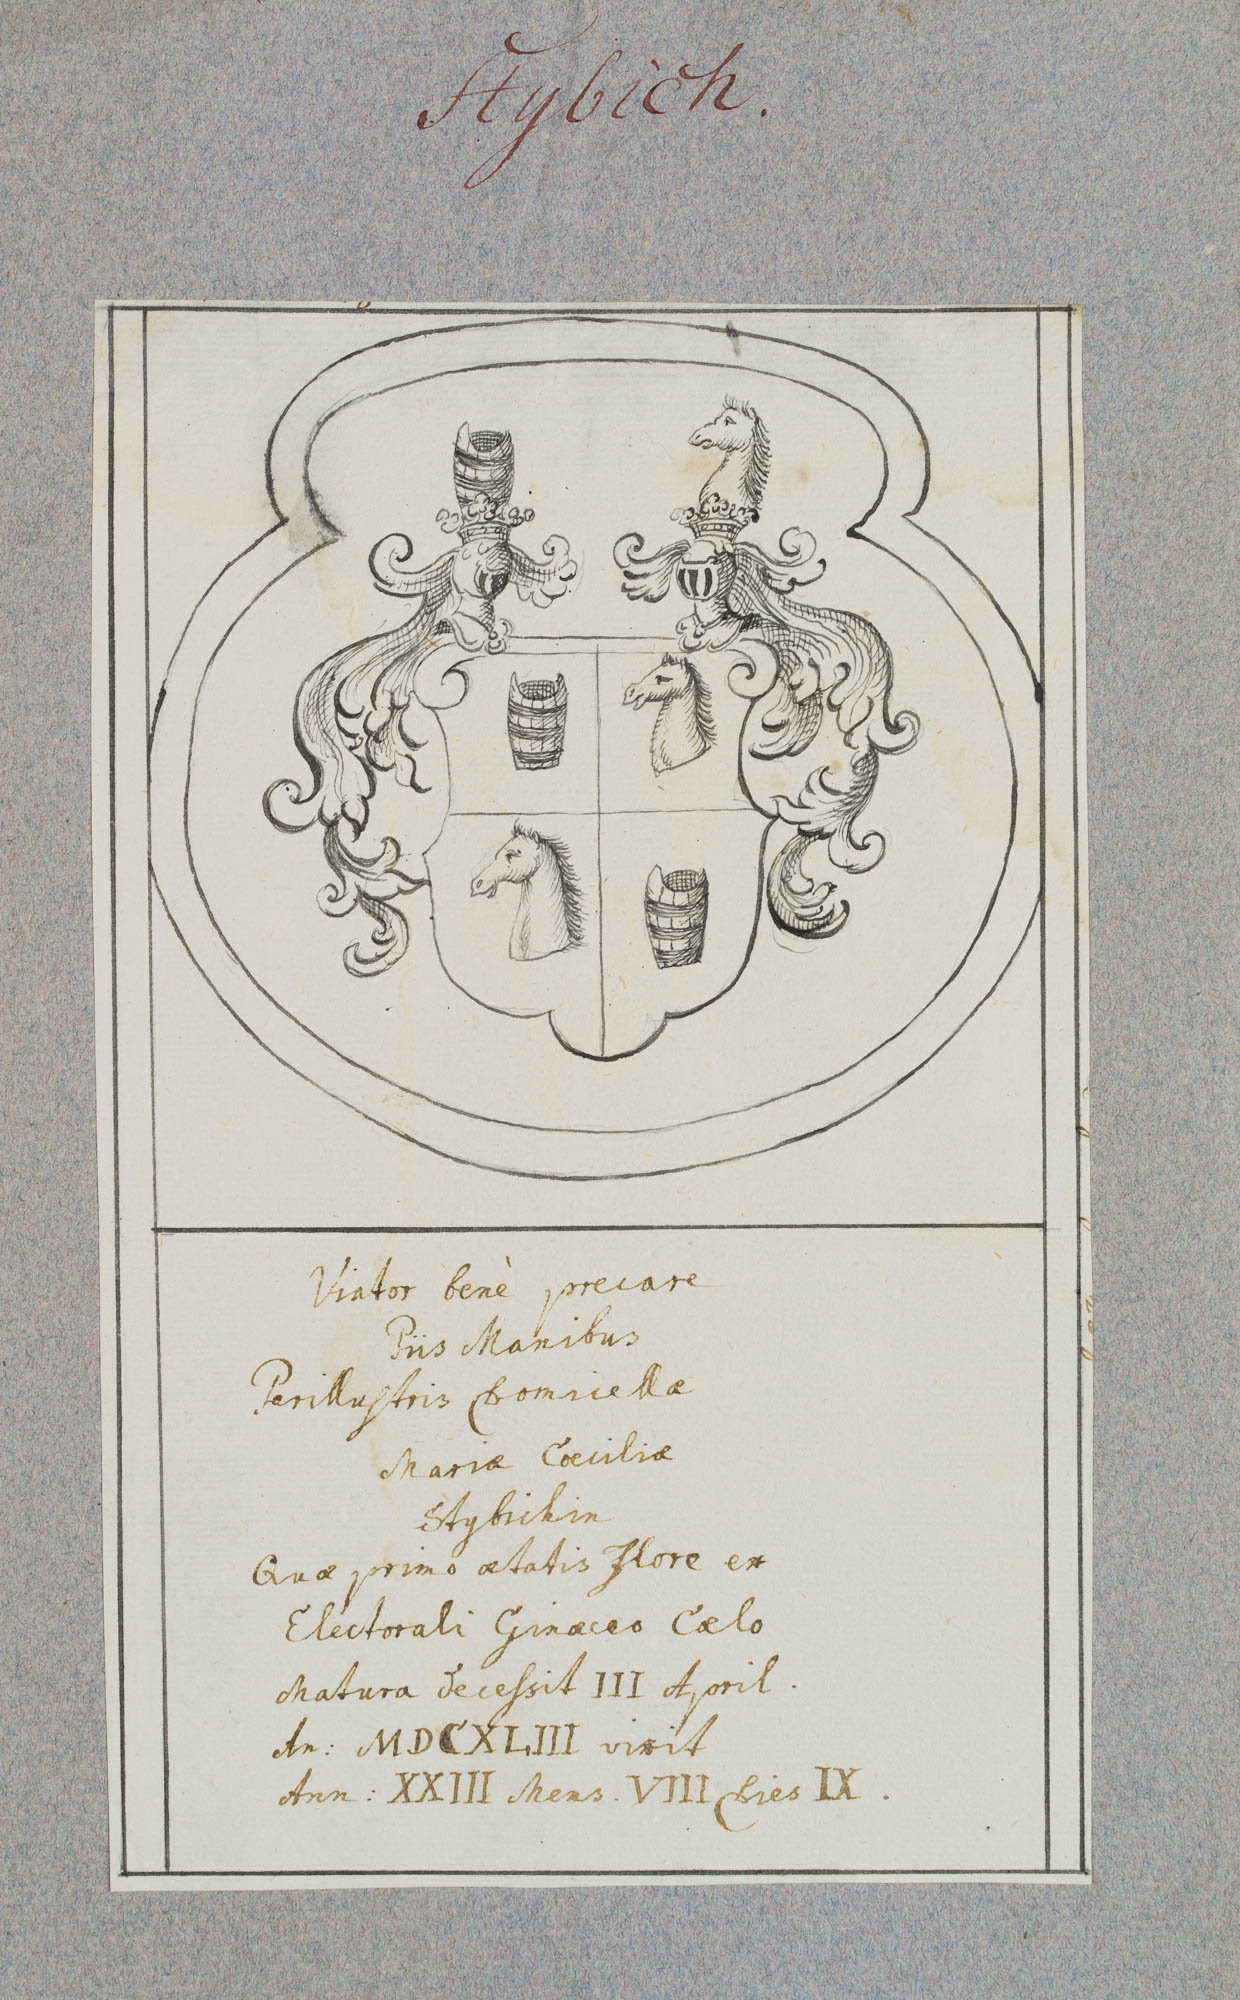 Stybich.
Viator benè precare
Piis Manibus
Perillustris Domicellæ
Mariæ Cœciliæ
Stybichin
Quæ primo ætatis Flore ex
Electorali Ginæceo Cælo
Matura decessit III April.
An: MDCXLIII vixit
Ann: XXIII Mens. VIII Dies IX.